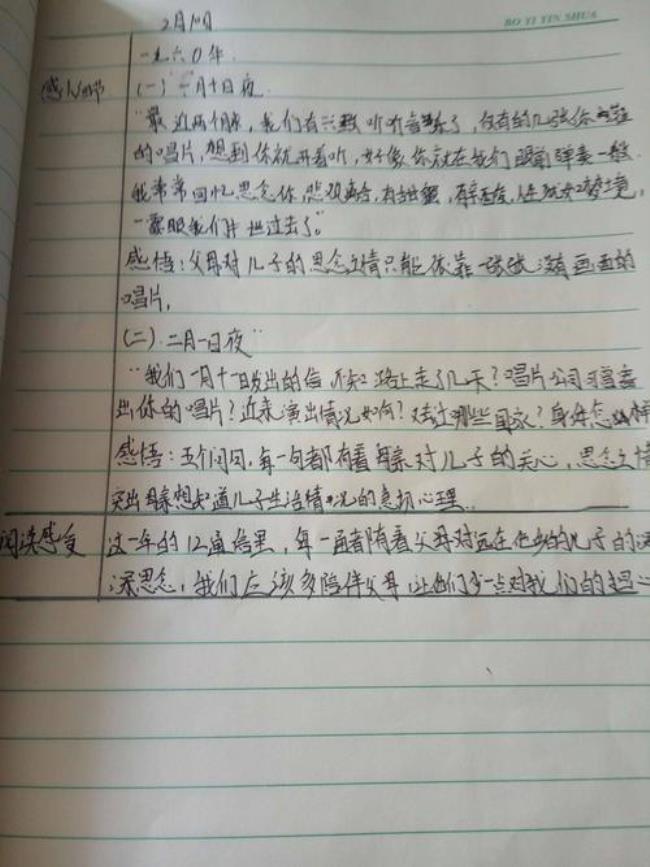 BO YI YIN SHUA
2月10日
一九六0年
感人细节
(一)一月十日夜
"最近两个月来,我们有兴致听听音乐了,仅有的几张你灌
的唱片,想到你就开着听,好像你就在我们跟前弹奏一般
我常常回忆思念你,悲欢离合,有甜蜜,有辛酸,人生犹如梦境,
一霎眼我们半世过去了。"
感悟:父母对儿子的思念之情只能依靠一张张没有画面的
唱片,
(二).二月一日夜"
"我们一月十一日发出的信,不知路上走了几天?唱片公司
出你的唱片?近来演出情况如何?又去过哪些国家?身体怎样
感悟:五个问句,每一句都有着母亲对儿子的关心,思念之情
突出母亲想知道儿子生活情况的急切心理..
阅读感受
这一年的12通信里,每一通都有着父母对远在他乡的儿子的深
深思念,我们应该多陪伴父母,让他们少一点对我们的担心